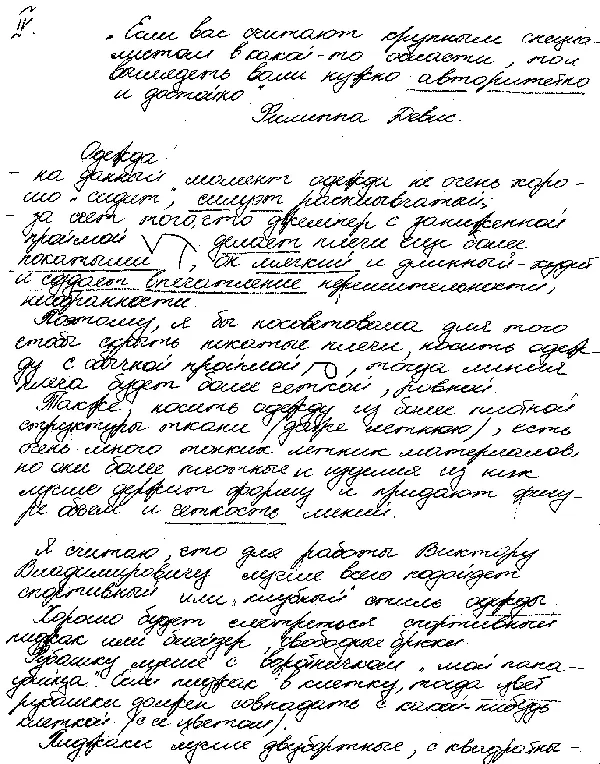 IV.
„Если вас считают крупным специа-
листом в какой-то области, то и
выглядеть вам нужно авторитетно
и достойно"
Филиппа Девис.
Одежда:
- на данный момент одежда не очень хоро-
шо „сидит", силуэт расплывчатый;
- за счет того, что джемпер с заниженной
проймой делает плечи еще более
покатыми, он мягкий и длинный - худит
и создает впечатление нерешительности,
несобранности.
Поэтому, я бы посоветовала для того
чтобы скрыть покатые плечи, носить одеж-
ду с обычной проймой, тогда линия
плеча будет более четкой, ровной.
Также, носить одежду из более плотной
структуры ткани (даже летнюю), есть
очень много тонких летних материалов,
но они более плотные и изделия из них
лучше держит форму и придают фигу-
ре объем и четкость линий.
Я считаю, что для работы Виктору
Владимировичу лучше всего подойдет
спортивный или „клубный" стиль одежды.
Хорошо будет смотреться спортивный
пиджак или блейзер, свободные брюки.
Рубашку лучше с воротничком
Если пиджак в клетку, тогда цвет
рубашки должен совпадать с какой-нибудь
клеткой (с ее цветом).
Пиджаки лучше двубортные, с квадратны-